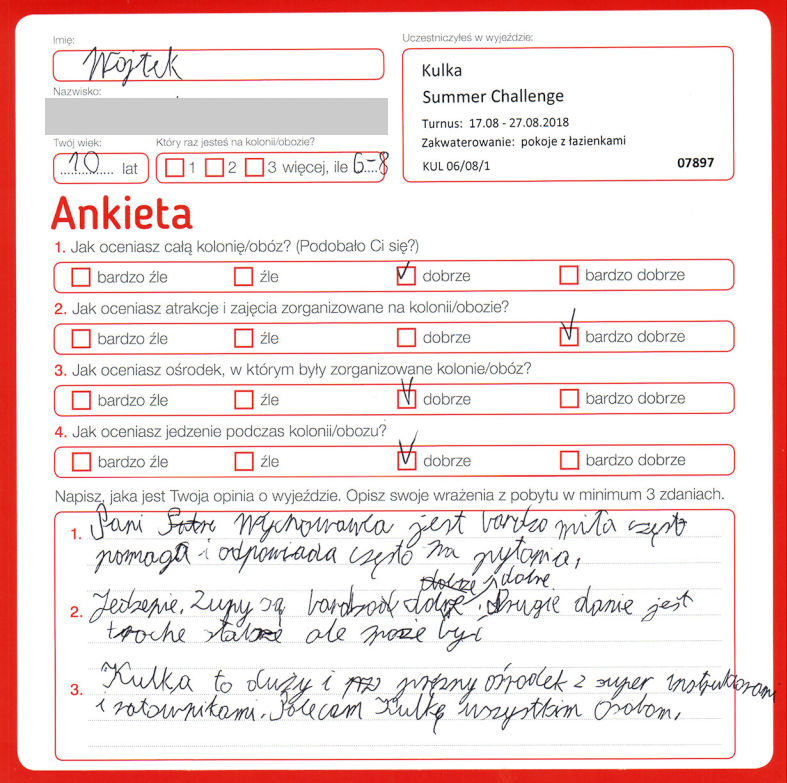 Imię:
Wojtek
Nazwisko:
Twój wiek:
10 lat
Który raz jesteś na kolonii/obozie?
1 2 3 więcej, ile 6-8
Uczestniczyłeś w wyjeździe:
Kulka
Summer Challenge
Turnus: 17.08 - 27.08.2018
Zakwaterowanie: pokoje z łazienkami
KUL 06/08/1 07897
Ankieta
1. Jak oceniasz całą kolonię/obóz? (Podobało Ci się?)
bardzo źle źle dobrze bardzo dobrze
2. Jak oceniasz atrakcje i zajęcia zorganizowane na kolonii/obozie?
bardzo źle źle dobrze bardzo dobrze
3. Jak oceniasz ośrodek, w którym były zorganizowane kolonie/obóz?
bardzo źle źle dobrze bardzo dobrze
4. Jak oceniasz jedzenie podczas kolonii/obozu?
bardzo źle źle dobrze bardzo dobrze
Napisz, jaka jest Twoja opinia o wyjeździe. Opisz swoje wrażenia z pobytu w minimum 3 zdaniach.
1. Pani Wychowawca jest bardzo miła często
pomaga i odpowiada często na pytania.
2. Jedzenie. Zupy są dobre. Drugie danie jest
troche słabsze ale może być
3. Kulka to duży i ośrodek z super instruktorami
i ratownikami. Polecam Kulkę wszystkim osobom.